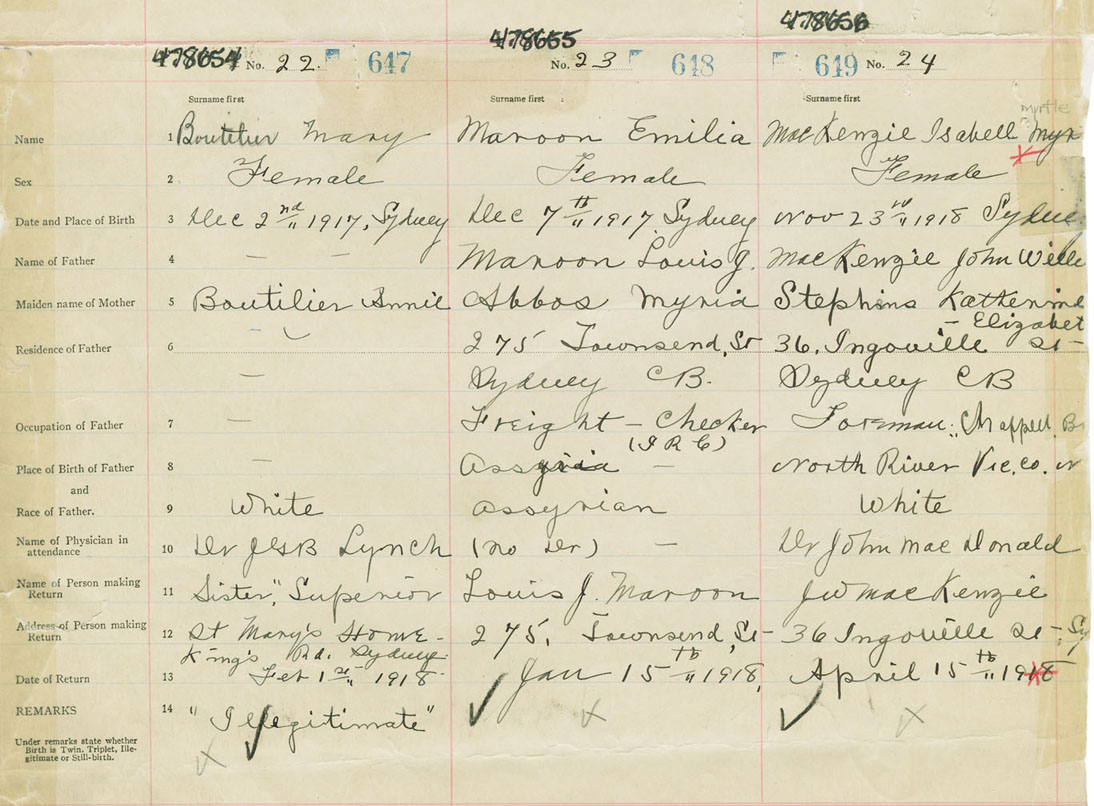 478654 478655 478656
No. 22. 647 No. 23 648 649 No. 24
Surname first Surname first Surname first
myrtle
Name 1 Boutilier Mary Maroon Emilia MacKenzie Isabell Myr
Sex 2 Female Female Female
Date and Place of Birth 3 Dec 2nd 1917, Sydney Dec 7th 1917 Sydney Nov 23rd 1918 Sydney
Name of Father 4 — — Maroon Louis J. MacKenzie John Willi
Maiden name of Mother 5 Boutilier Annie Abbos Myria Stephins Katherine
— — Elizabet
Residence of Father 6 275 Townsend, St 36, Ingouille St —
— Sydney CB. Sydney CB
Occupation of Father 7 — Freight — Checker Foreman, Chappell B
(I R C)
Place of Birth of Father 8 — Assyria — North River Vic, co. N
and
Race of Father. 9 White Assyrian White
Name of Physician in
attendance 10 Dr JGB Lynch (no Dr) — Dr John MacDonald
Name of Person making
Return 11 Sister, Superior Louis J. Maroon JW MacKenzie
Address of Person making
Return 12 St Mary's Home - 275, Townsend, St — 36 Ingouille St —, Sy
King's Rd. Sydney
Date of Return 13 Feb 1st 1918 Jan 15th 1918, April 15th 1918
REMARKS 14 "Illegitimate"
Under remarks state whether
Birth is Twin, Triplet, Ille-
gitimate or Still-birth.